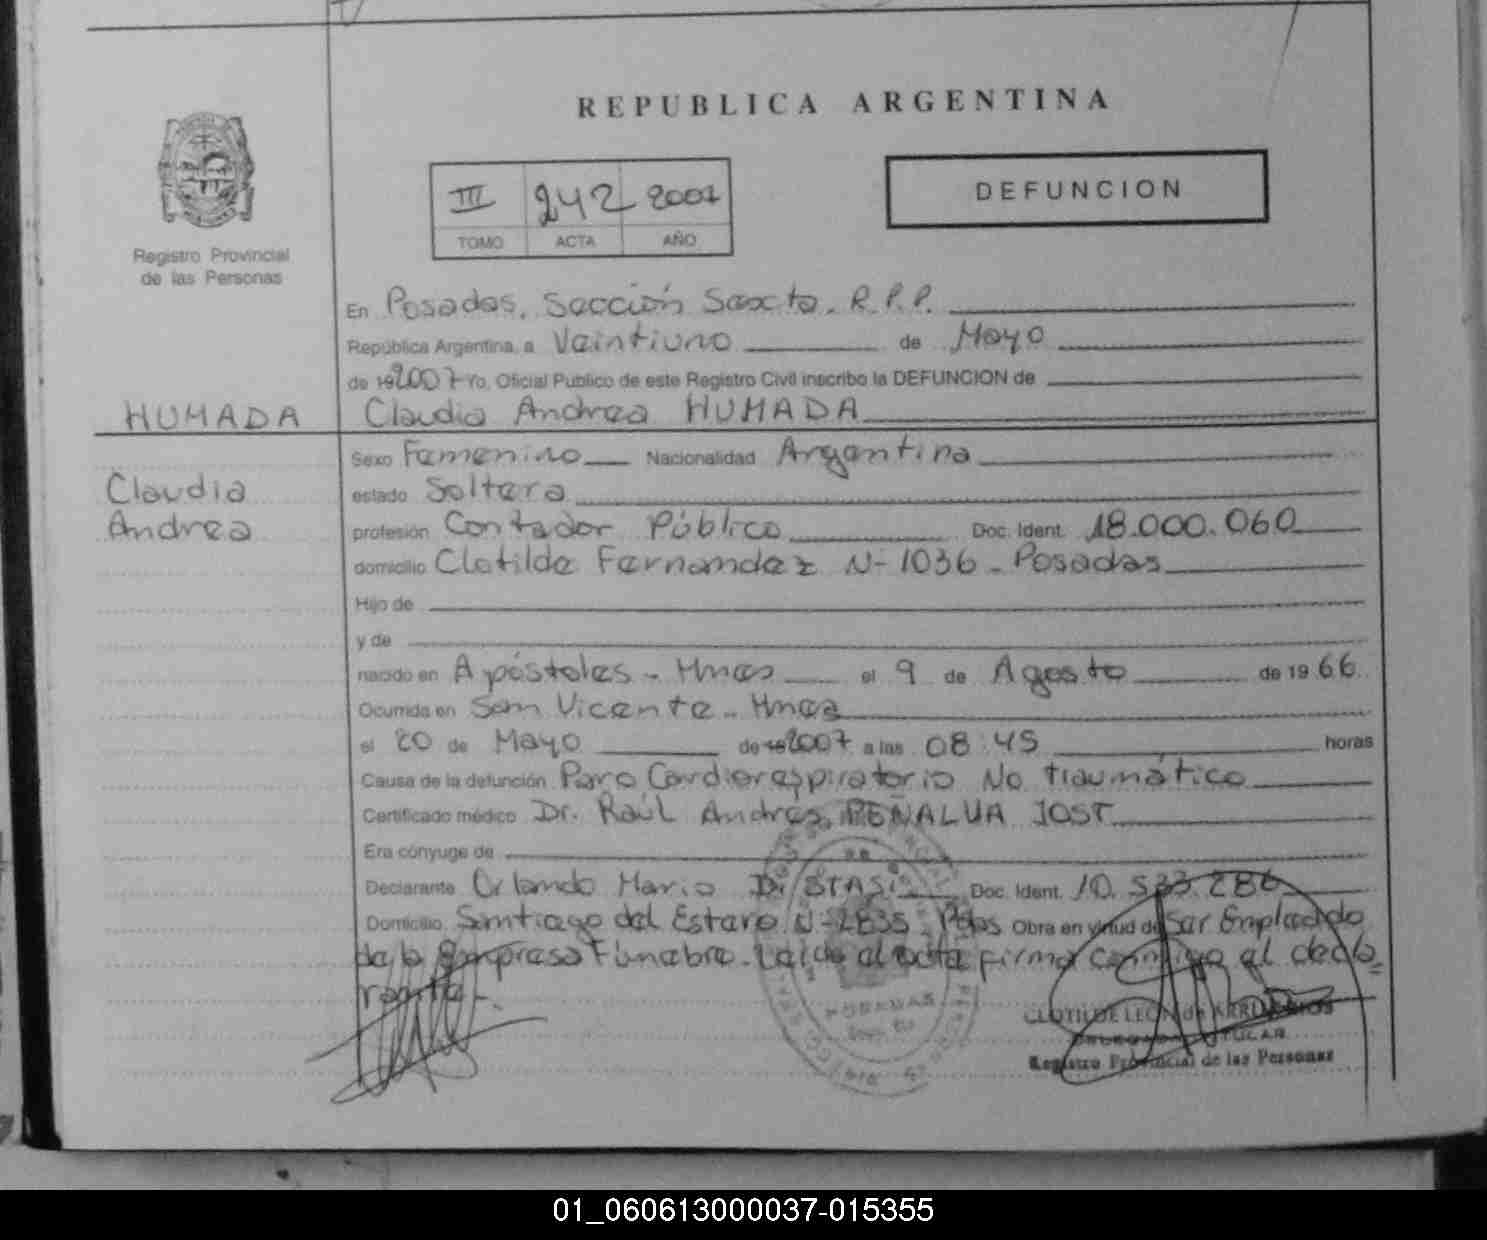 REPUBLICA ARGENTINA
III 242 2007
TOMO ACTA AÑO
DEFUNCION
Registro Provincial
de las Personas
En Posadas, Sección Sexta. R.P.P.
República Argentina, a Veintiuno de Mayo
de 19 2007 Yo, Oficial Publico de este Registro Civil inscribo la DEFUNCION de
HUMADA
Claudia Andrea HUMADA
Claudia
Andrea
Sexo Femenino Nacionalidad Argentina
estado Soltera
profesión Contador Público Doc. Ident. 18.000.060
domicilio Clotilde Fernandez N- 1036 - Posadas
Hijo de
y de
nacido en Apóstoles - Mnes el 9 de Agosto de 19 66
Ocurrida en San Vicente - Mnes
el 20 de Mayo de 19 2007 a las 08:45 horas
Causa de la defunción Paro Cardiorespiratorio No traumático
Certificado médico Dr. Raúl Andrés PEÑALVA JOST
Era cónyuge de
Declarante Orlando Mario Di STASI Doc. Ident. 10.533.286
Domicilio Santiago del Estero N- 2835 - Pdas Obra en virtud de Ser Empleado
de la Empresa Fúnebre. Leída el acta firma conmigo el decla=
rante.
POSADAS
CLOTILDE LEON de ARRIEROS
DELEGADA TITULAR
Registro Provincial de las Personas
01_060613000037-015355